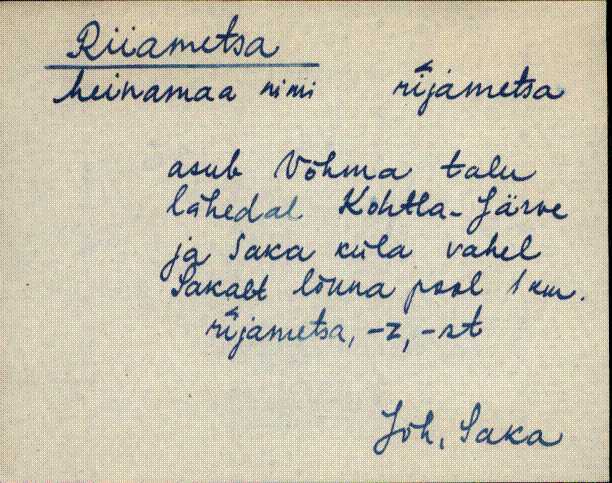 Riiametsa
heinamaa nimi rìjametsa
asub Võhma talu
lähedal Kohtla-Järve
ja Saka küla vahel
Sakalt lõuna pool 1 km.
rìjametsa, -z, -st
Jõh, Saka